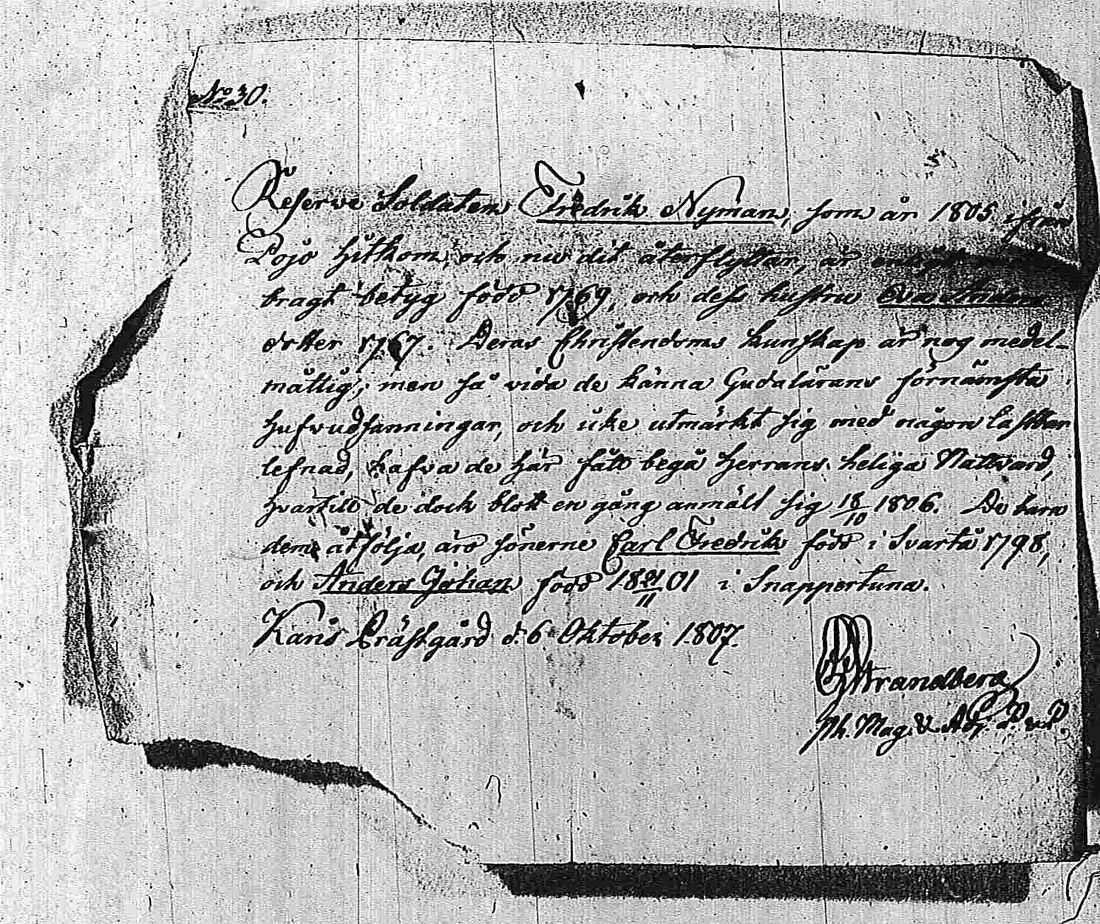 No 30.
Reserve Soldaten Fredrik Nyman, som år 1805 ifrån
Pojo hitkom, och nu dit återflyttar, är
bragt betyg född 1769, och dess hustru Eva Anders
dotter 1767. Deras Christendoms kunskap är nog medel-
måttig; men så vida de känna Gudalärans förnämsta
hufvudsanningar, och icke utmärkt sig med någon lastbar
lefnad, hafva de här fått begå Herrans heliga Nattvard,
hvartill de dock blott en gång anmält sig 18/10 1806. De barn
dem åtfölja, äro sönerne Carl Fredrik född i Svartå 1798,
och Anders Johan född 18 21/11 01 i Snappertuna.
Karis Prästgård d. 6 Oktober 1807.
Strandberg
Ph. Mag. &